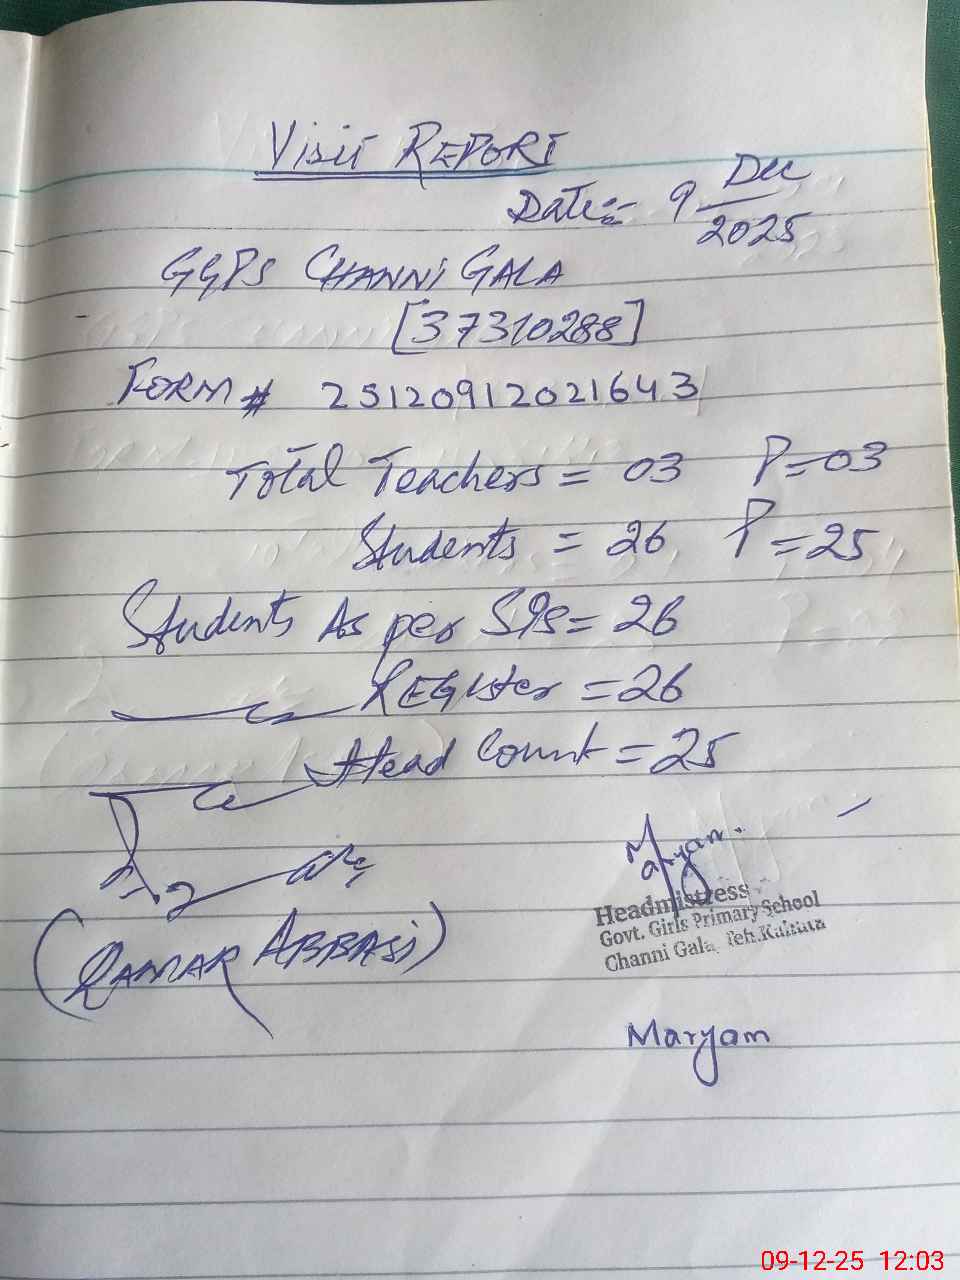 Visit REPORT
Date:= 9 Dec 2025
GGPS CHANNI GALA
[37310288]
FORM # 25120912021643
Total Teachers = 03 P=03
Students = 26 P=25
Students As per SIS=26
REGister =26
Head Count =25
Maryam.
(QAMAR ABBASi)
Headmistress
Govt. Girls Primary School
Channi Gala, Teh.
Maryam
09-12-25 12:03